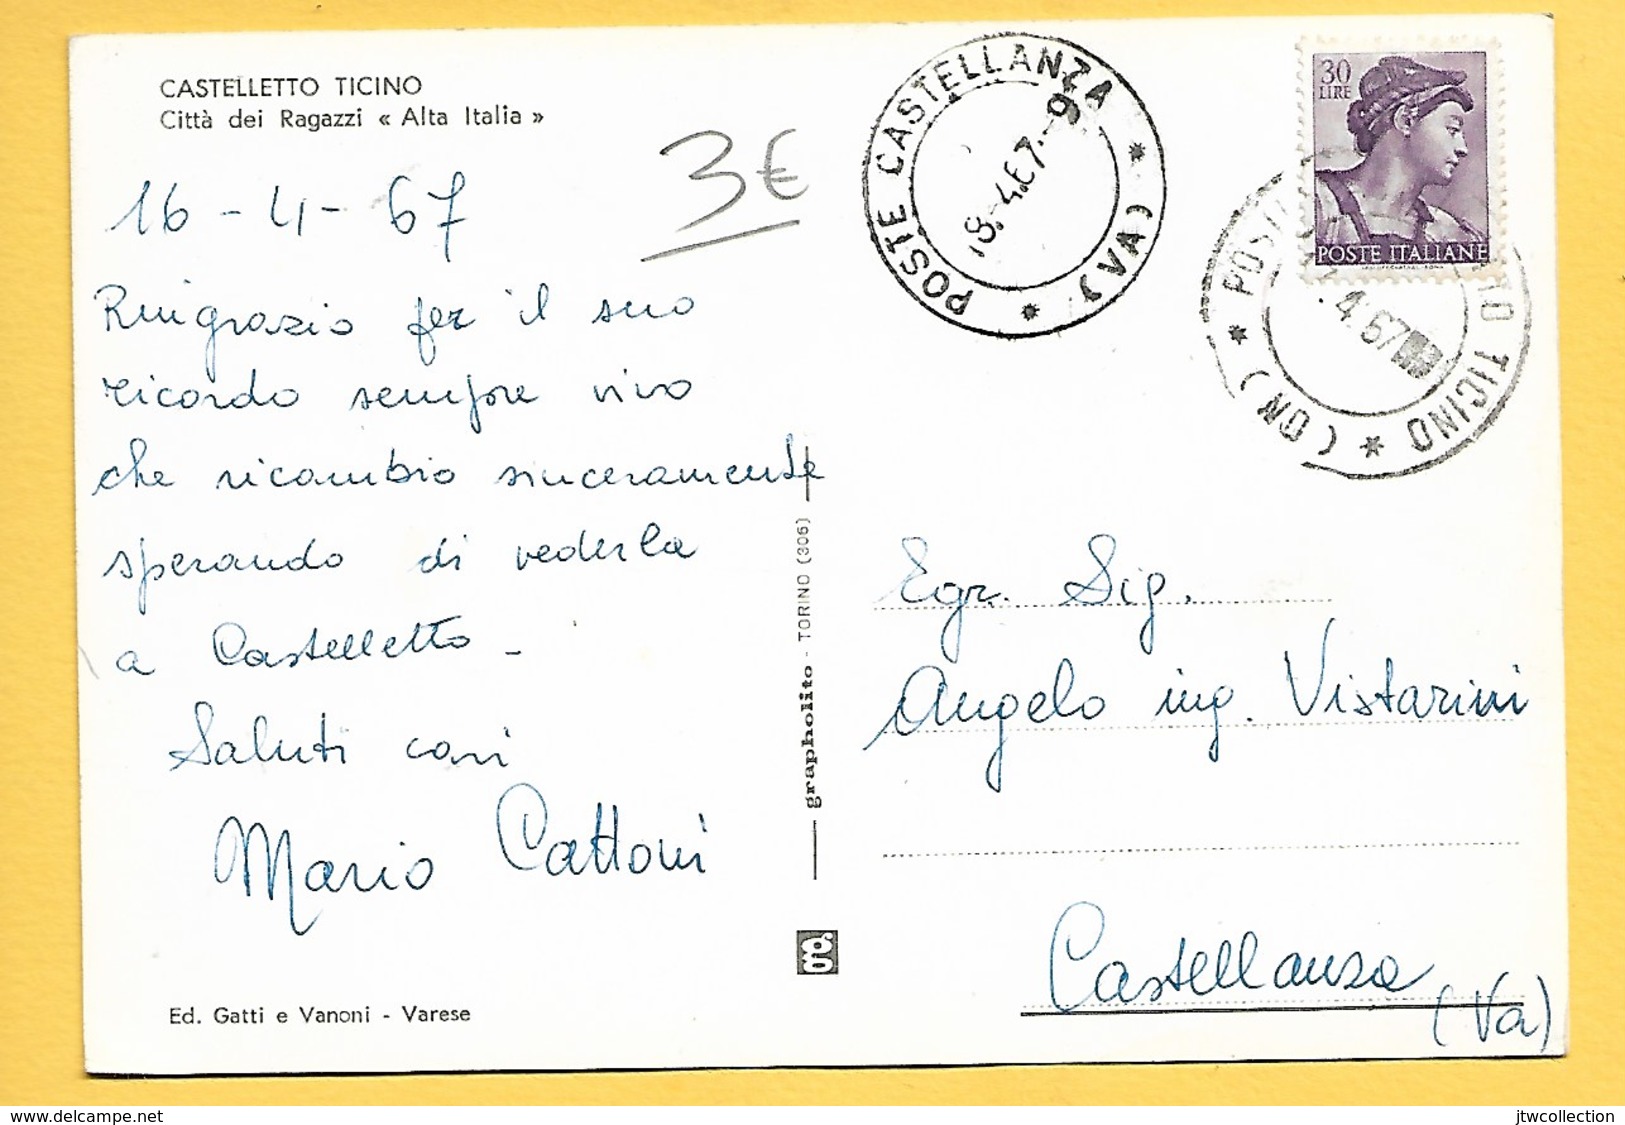 CASTELLETTO TICINO
Città dei Ragazzi « Alta Italia »
3€
16 - 4 - 67
Ringrazio per il suo
ricordo sempre vivo
che ricambio sinceramente
sperando di vederla
a Castelletto -
Saluti cari
Mario Cattoni
Ed. Gatti e Vanoni - Varese
grapholito - TORINO (306)
g
POSTE CASTELLANZA * (VA) *
18.-4.67.-9
30
LIRE
POSTE ITALIANE
TICINO * (ON) *
4.67
Egr. Sig.
Angelo ing. Vistarini
Castellanza
(Va)
www.delcampe.net
jtwcollection